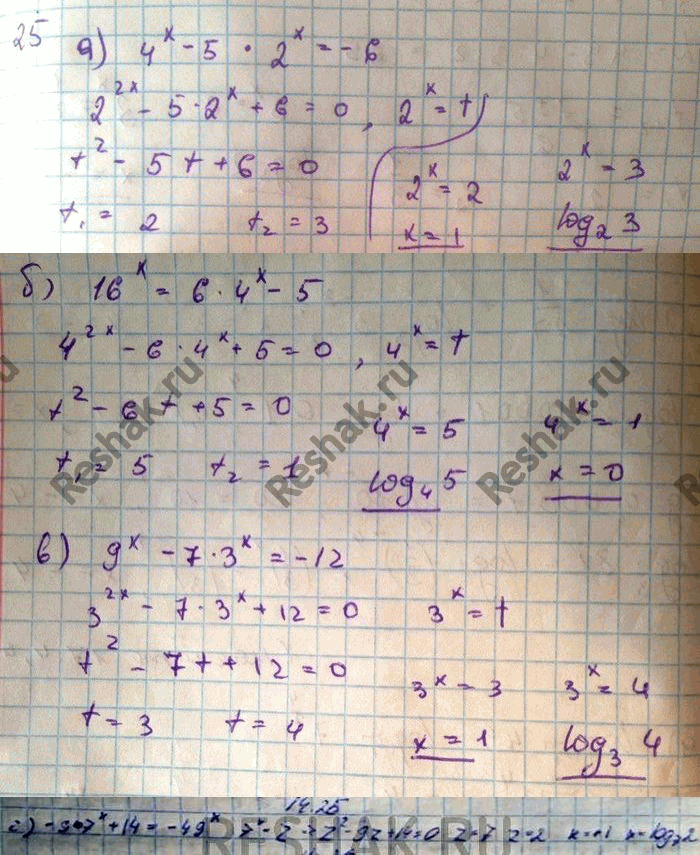 25
а) 4^x - 5 · 2^x = -6
2^2x - 5 · 2^x + 6 = 0, 2^x = t
t^2 - 5t + 6 = 0
2^x = 2 2^x = 3
t₁ = 2 t₂ = 3
x = 1 log₂ 3
б) 16^x = 6 · 4^x - 5
4^2x - 6 · 4^x + 5 = 0, 4^x = t
t^2 - 6t + 5 = 0
4^x = 5 4^x = 1
t₁ = 5 t₂ = 1
log₄ 5 x = 0
Reshak.ru Reshak.ru Reshak.ru
в) 9^x - 7 · 3^x = -12
3^2x - 7 · 3^x + 12 = 0 3^x = t
t^2 - 7t + 12 = 0
3^x = 3 3^x = 4
t = 3 t = 4
x = 1 log₃ 4
14.25
г) -9·7^x + 14 = -49^x 7^x = z z^2 - 9z + 14 = 0 z = 7 z = 2
RESHAK.RU